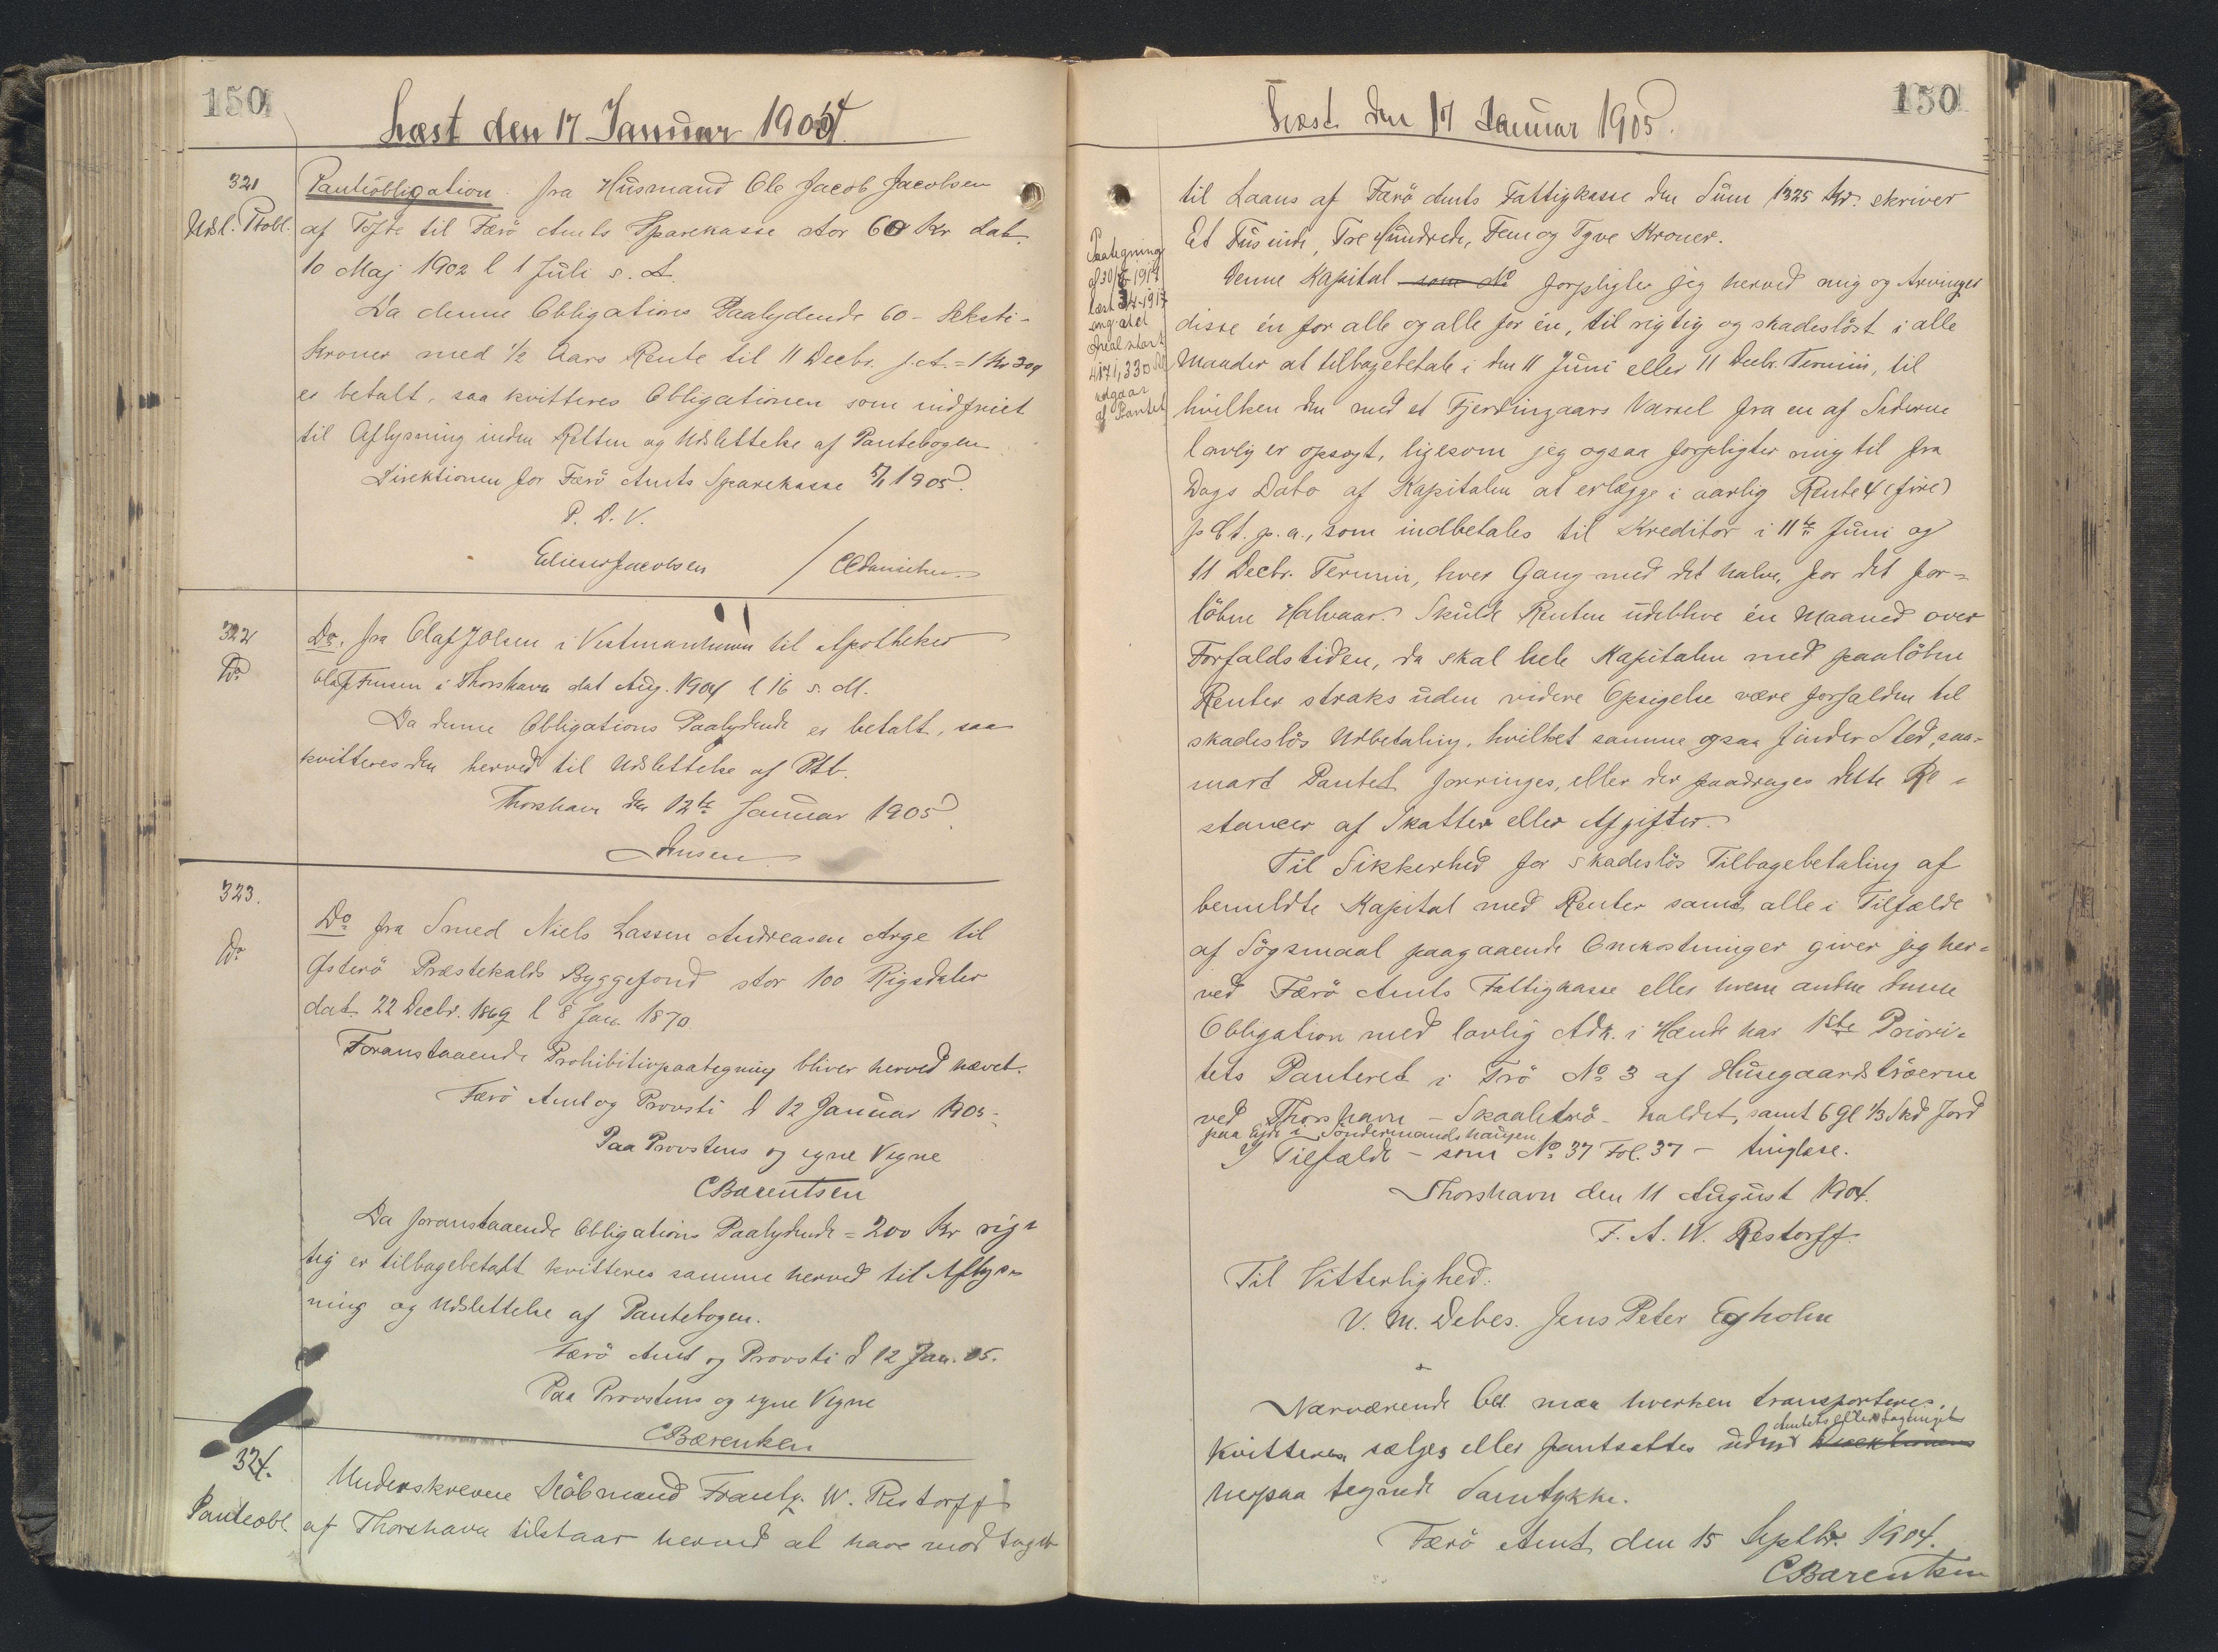 150
Læst den 17 Januar 1905.
321
Udsl. Ptobl.
Panteobligation fra Husmand Ole Jacob Jacobsen
af Tofte til Færö Amts Sparekasse stor 60 Kr dat.
10 Maj 1902 l 1 Juli s. A.
Da denne Obligations Paalydende 60 - Seksti -
Kroner med ½ Aars Rente til 11 Decbr. f. A. = 1 Kr 30 ø
er betalt, saa kvitteres Obligationen som indfriet
til Aflysning inden Retten og Udslettelse af Pantebogen.
Direktionen for Færö Amts Sparekasse 1905.
P. D. V.
Elieser Jacobsen / C Danielsen
322
Do
Do. fra Olaf J Olsen i Vestmanhavn til Apotheker
Olaf Jensen i Thorshavn dat Aug. 1904 l 16 s. M.
Da denne Obligations Paalydende er betalt, saa
kvitteres den herved til Udslettelse af Ptb.
Thorshavn den 12te Januar 1905
Jensen
323.
Do
Do fra Smed Niels Lassen Andreasen Arge til
Østerö Præstekalds Byggefond stor 100 Rigsdaler
dat. 22 Decbr. 1869 l 8 Jan. 1870
Foranstaaende Prohibitivpaategning bliver herved hævet.
Færö Amt og Provsti d 12 Januar 1905.
Paa Provstens og egne Vegne
CBærentsen
Da foranstaaende Obligations Paalydende = 200 Kr rig=
tig er tilbagebetalt kvitteres samme herved til Aflys=
ning og Udslettelse af Pantebogen.
Færö Amt og Provsti d 12 Jan. 05.
Paa Provstens og egne Vegne
CBærentsen
324.
Panteobl.
Underskrevne Köbmand Frantz. W. Restorff
af Thorshavn tilstaar herved at have modtaget
150
Læst den 17 Januar 1905.
til Laans af Færö Amts Fattigkasse den Sum 1325 Kr. skriver
Et Tusinde, Tre Hundrede, Fem og Tyve Kroner.
Paategning
læst 3/4-1917
ang. at et
Areal stort
4171,330
udgaar
af Pantet
Denne Kapital som No forpligter jeg herved mig og Arvinger
disse én for alle og alle for én, til rigtig og skadeslöst i alle
Maader at tilbagebetale i den 11 Juni eller 11 Decbr. Termin, til
hvilken den med et Fjerdingaars Varsel fra en af Siderne
lovlig er opsagt, ligesom jeg ogsaa forpligter mig til fra
Dags Dato af Kapitalen at erlægge i aarlig Rente 4 (fire)
p Ct. p. a., som indbetales til Kreditor i 11te Juni og
11 Decbr. Termin, hver Gang med det halve, for det for=
löbne Halvaar. Skulde Renten udeblive én Maaned over
Forfaldstiden, da skal hele Kapitalen med paalöbne
Renter straks uden videre Opsigelse være forfalden til
skadeslös Udbetaling, hvilket samme ogsaa finder Sted, saa-
snart Pantet forringes, eller der paadrages dette Re=
stancer af Skatter eller Afgifter.
Til Sikkerhed for skadeslös Tilbagebetaling af
bemeldte Kapital med Renter samt alle i Tilfælde
af Sögsmaal paagaaende Omkostninger giver jeg her=
ved Færö Amts Fattigkasse eller hvem anden denne
Obligation med lovlig Adk. i Hænde har 1ste Priori=
tets Panteret i Trö No 3 af Husegaardströerne
ved Thorshavn - Skaaletrö - kaldet, samt 6 Gl ⅓ Skd Jord
paa Ejde i Söndermandshaugen
I Tilfælde - som No 37 Fol. 37 - tinglæse.
Thorshavn den 11 August 1904.
F. A. W. Restorff.
Til Vitterlighed:
V. M. Debes. Jens Peter Egholm
Nærværende Obl. maa hverken transporteres,
Amtets eller Lagtingets
kvitteres, sælges eller pantsættes uden Direktionens
herpaa tegnede Samtykke.
Færö Amt den 15 Septbr. 1904.
CBærentsen